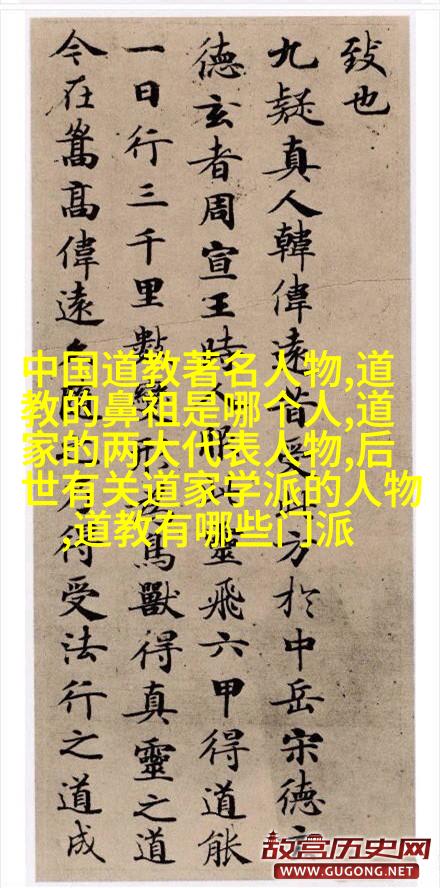 致也
九疑真人韓偉遠昔受此方於中岳宋德
德玄者周宣王時人服此靈飛六甲得道能
一日行三千里數變形為鳥獸得真靈之道
今在嵩高偉遠久隨之乃得受法行之道成
中国道教著名人物,道
教的鼻祖是哪个人,道
家的两大代表人物,后
世有关道家学派的人物
,道教有哪些门派
故宫历史网
WWW.GUGONG.NET